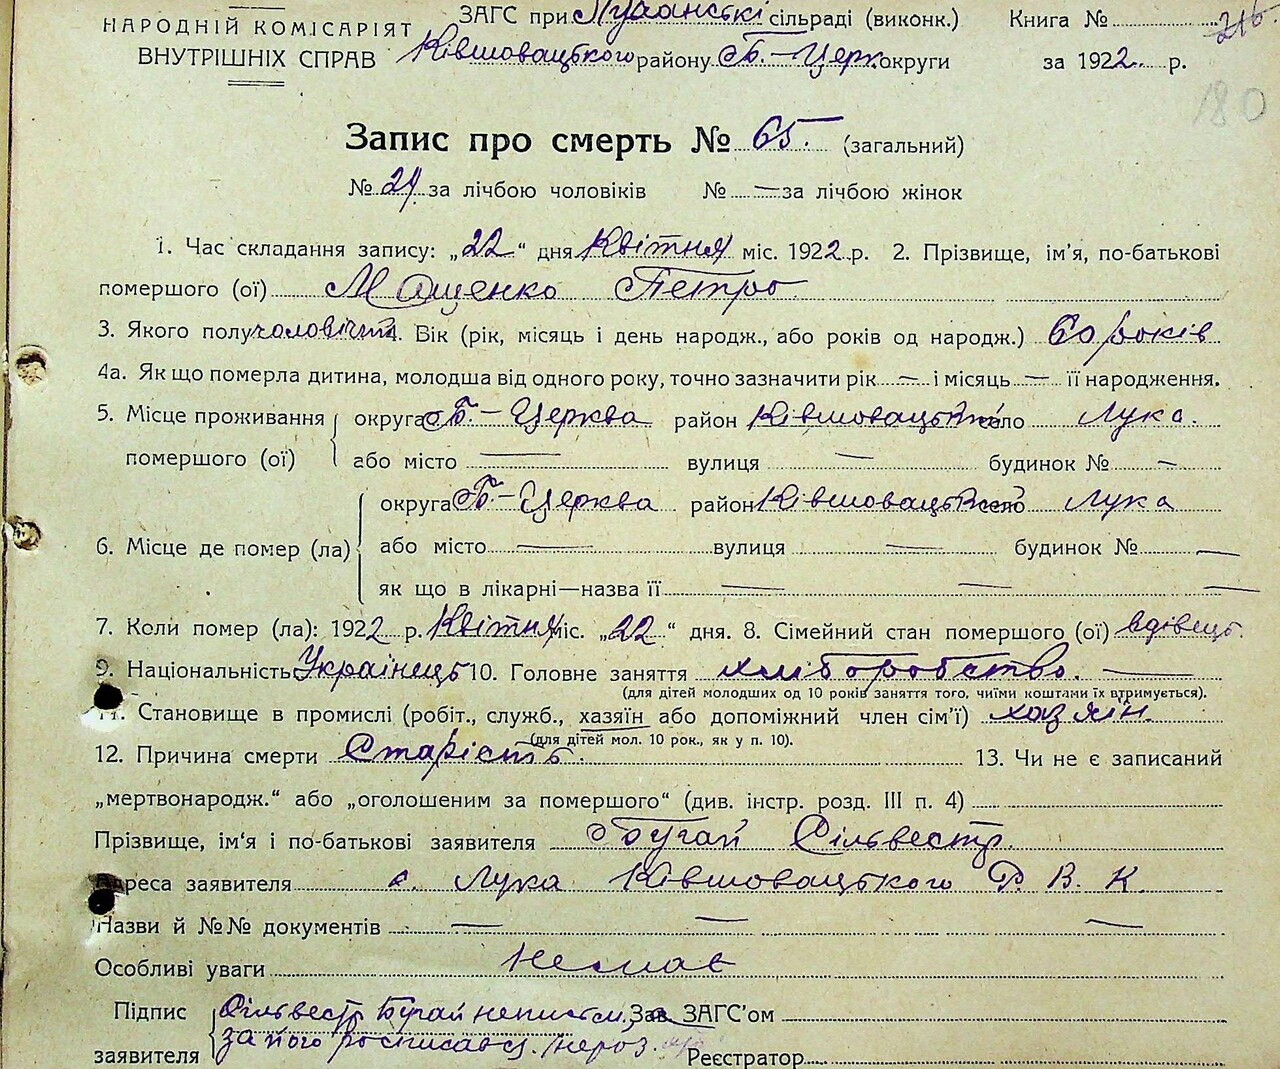 НАРОДНІЙ КОМІСАРІЯТ
ВНУТРІШНІХ СПРАВ
ЗАГС при Лучанські сільраді (виконк.) Книга № 216
Ківшовацького району Б.-Церк. округи за 1922 р.
180
Запис про смерть № 65. (загальний)
№ 24 за лічбою чоловіків № — за лічбою жінок
1. Час складання запису: „22“ дня Квітня міс. 1922 р. 2. Прізвище, ім'я, по-батькові
помершого (ої) Мащенко Петро
3. Якого полу чоловічт 4. Вік (рік, місяць і день народж., або років од народж.) 60 років
4а. Як що померла дитина, молодша від одного року, точно зазначити рік — і місяць — її народження.
5. Місце проживання помершого (ої) округа Б.-Церква район Ківшовацький село Лука.
або місто — вулиця — будинок № —
6. Місце де помер (ла) округа Б.-Церква район Ківшовацький село Лука
або місто — вулиця — будинок № —
як що в лікарні—назва її — — —
7. Коли помер (ла): 1922 р. Квітня міс. „22“ дня. 8. Сімейний стан помершого (ої) вдівець.
9. Національність Українець 10. Головне заняття хліборобство. —
(для дітей молодших од 10 років заняття того, чиїми коштами їх втримується).
11. Становище в промислі (робіт., служб., хазяїн або допоміжний член сім'ї) хазяїн.
(для дітей мол. 10 рок., як у п. 10).
12. Причина смерти Старість. 13. Чи не є записаний
„мертвонародж.“ або „оголошеним за помершого“ (див. інстр. розд. III п. 4)
Прізвище, ім'я і по-батькові заявителя Бугай Сільвестр.
Адреса заявителя с. Лука Ківшовацького Р. В. К.
Назви й №№ документів — — —
Особливі уваги Немає
Підпис заявителя Сільвестр Бугай неписьм, Зав. ЗАГС'ом
за його росписався /нероз. Реєстратор